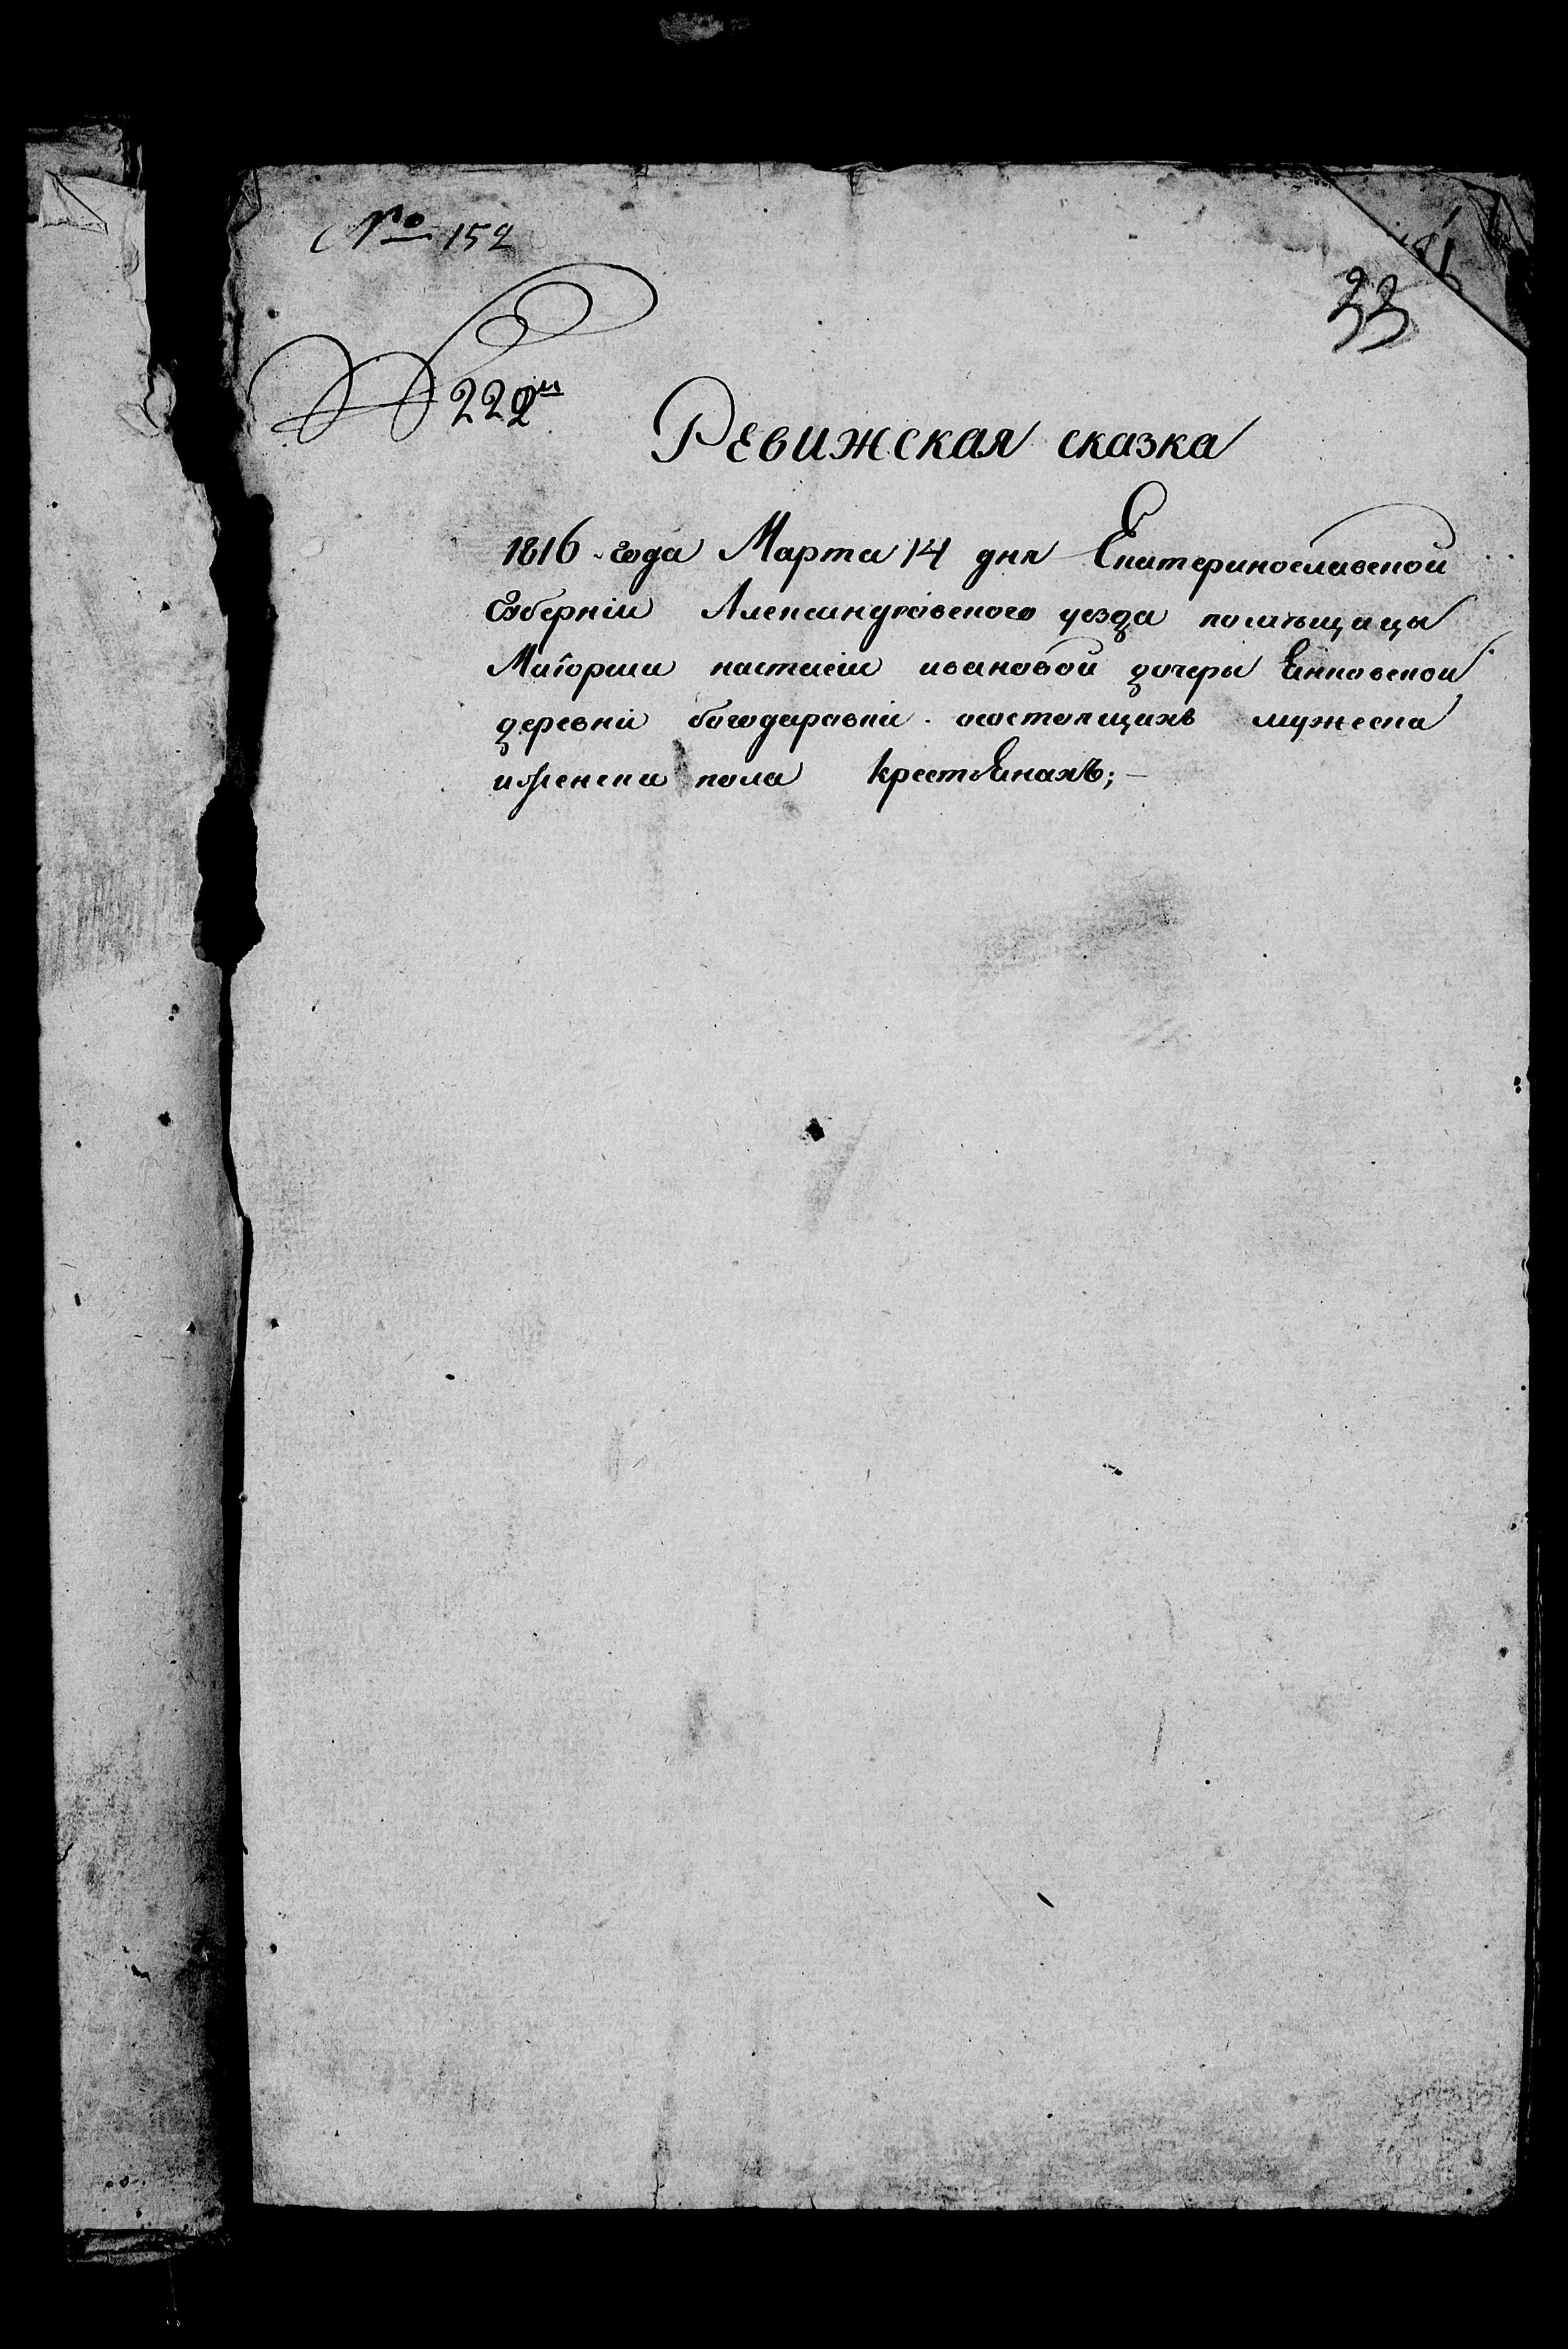 № 152
33
№ 222й
Ревижская сказка
1816 года Марта 14 дня Екатеринославской
Губерніи Александровского уезда помѣщицы
Маіорши настасіи ивановой дочеры
деревни богодаровки осостоящихъ мужеска
иженска пола крестьянахъ;—